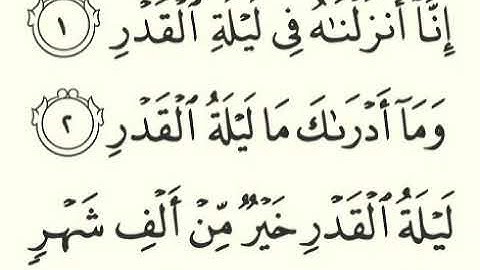 إِنَّآ أَنزَلْنَـٰهُ فِى لَيْلَةِ ٱلْقَدْرِ ١
وَمَآ أَدْرَىٰكَ مَا لَيْلَةُ ٱلْقَدْرِ ٢
لَيْلَةُ ٱلْقَدْرِ خَيْرٌ مِّنْ أَلْفِ شَهْرٍ